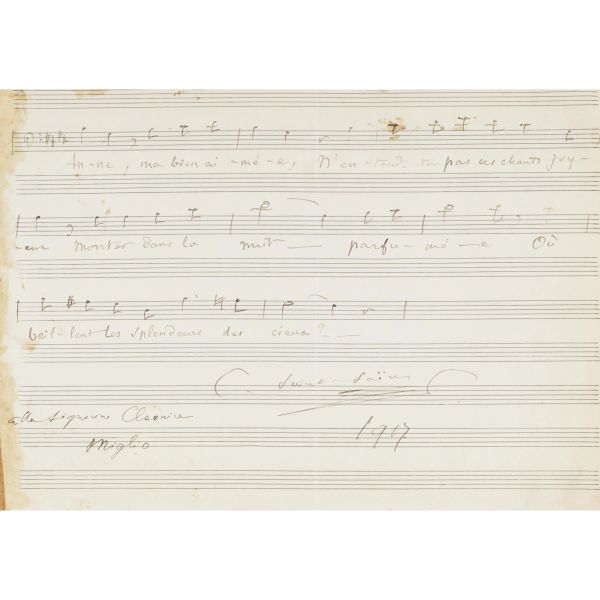 An-ne, ma bien ai-mé-e, N'en-tend-tu pas ces chants joy-
-eux monter dans la nuit — parfu-mé-e Où
bril-lent les splendeurs des cieux? —
C. Saint-Saëns
alla Signorina Cleonice
Miglio
1917